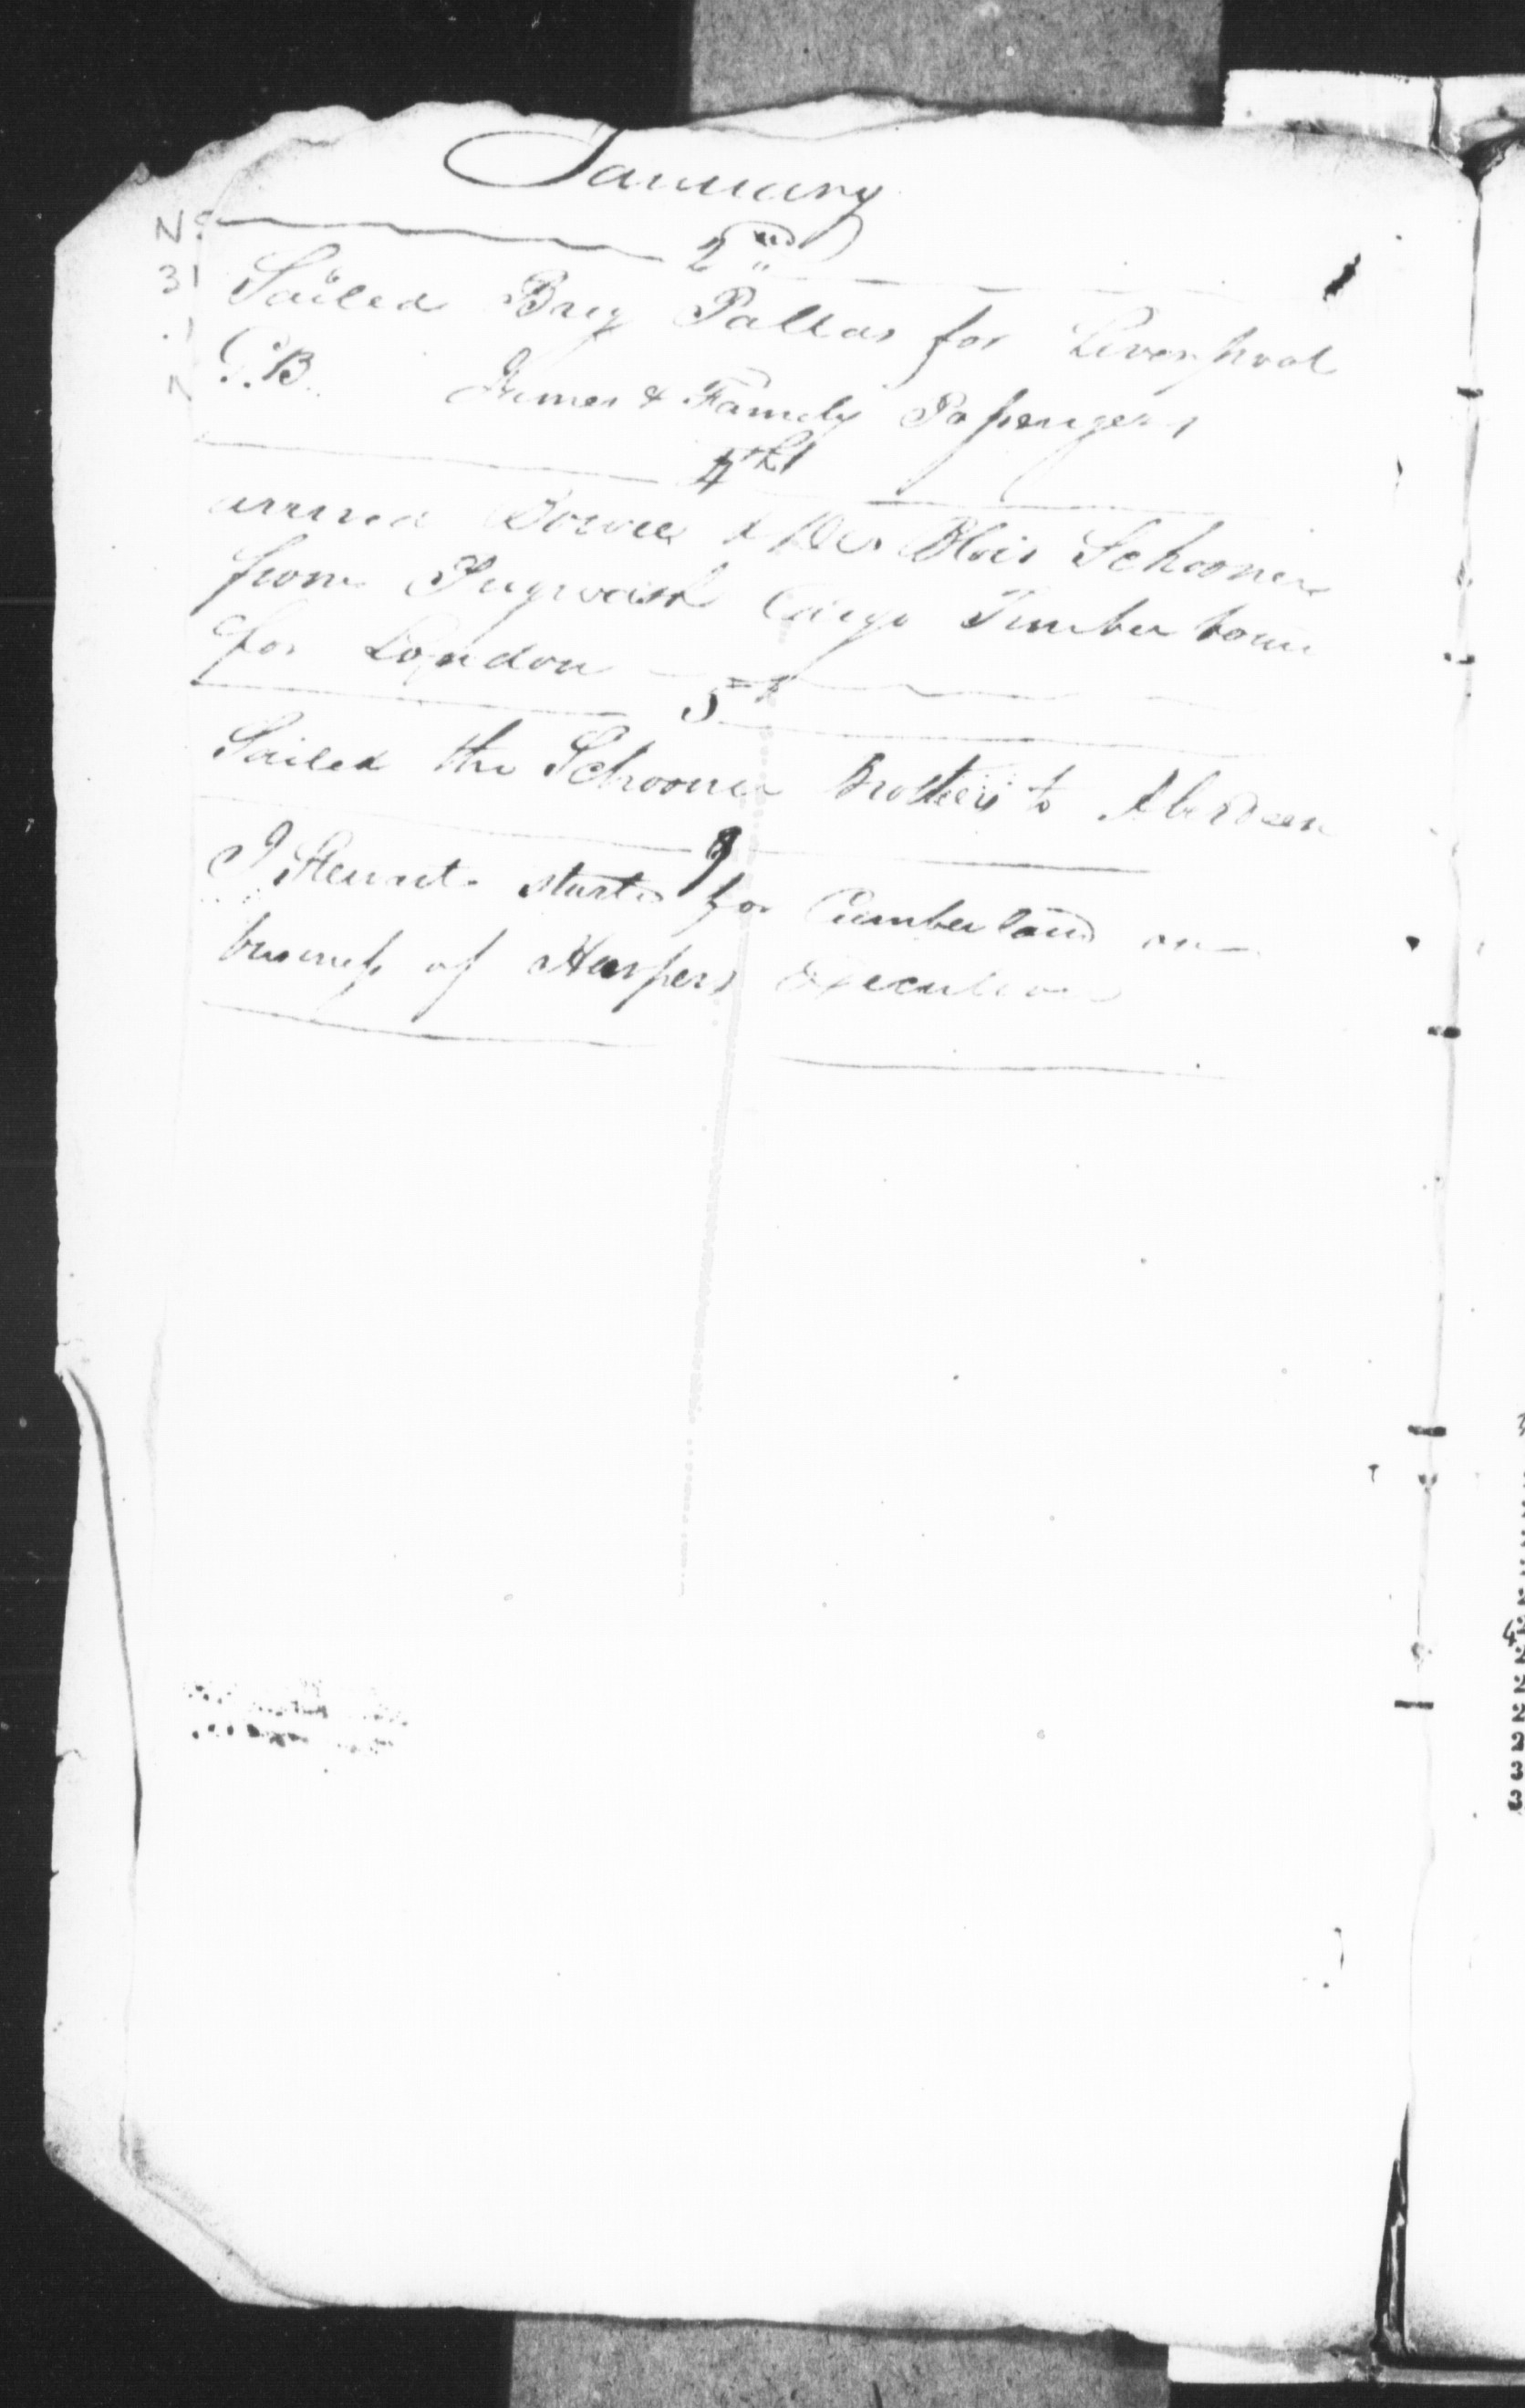 January
No
2nd
31
Sailed Brig Pallas for Liverpool
G.B. & Family Passengers
4th
arrived & Des Blois Schooner
from Pugwash Cargo Timber boun
for London
5th
Sailed the Schooner Brothers to Aberdeen
J Stewart started for Cumberland on
business of Harpers Execution